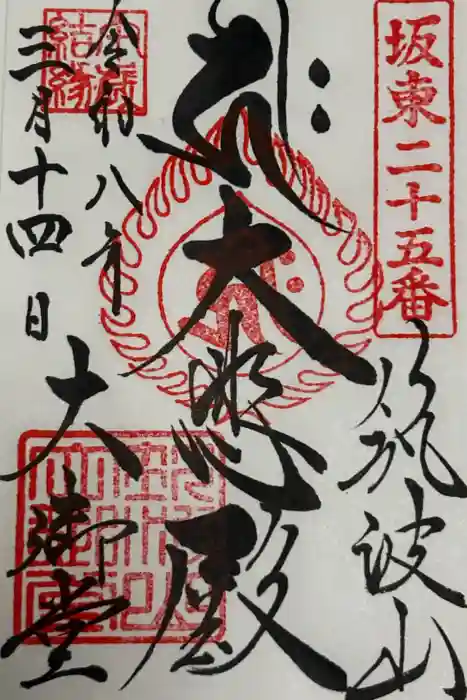 坂東二十五番
筑波山
大悲殿
令和八年
三月十四日
大御堂